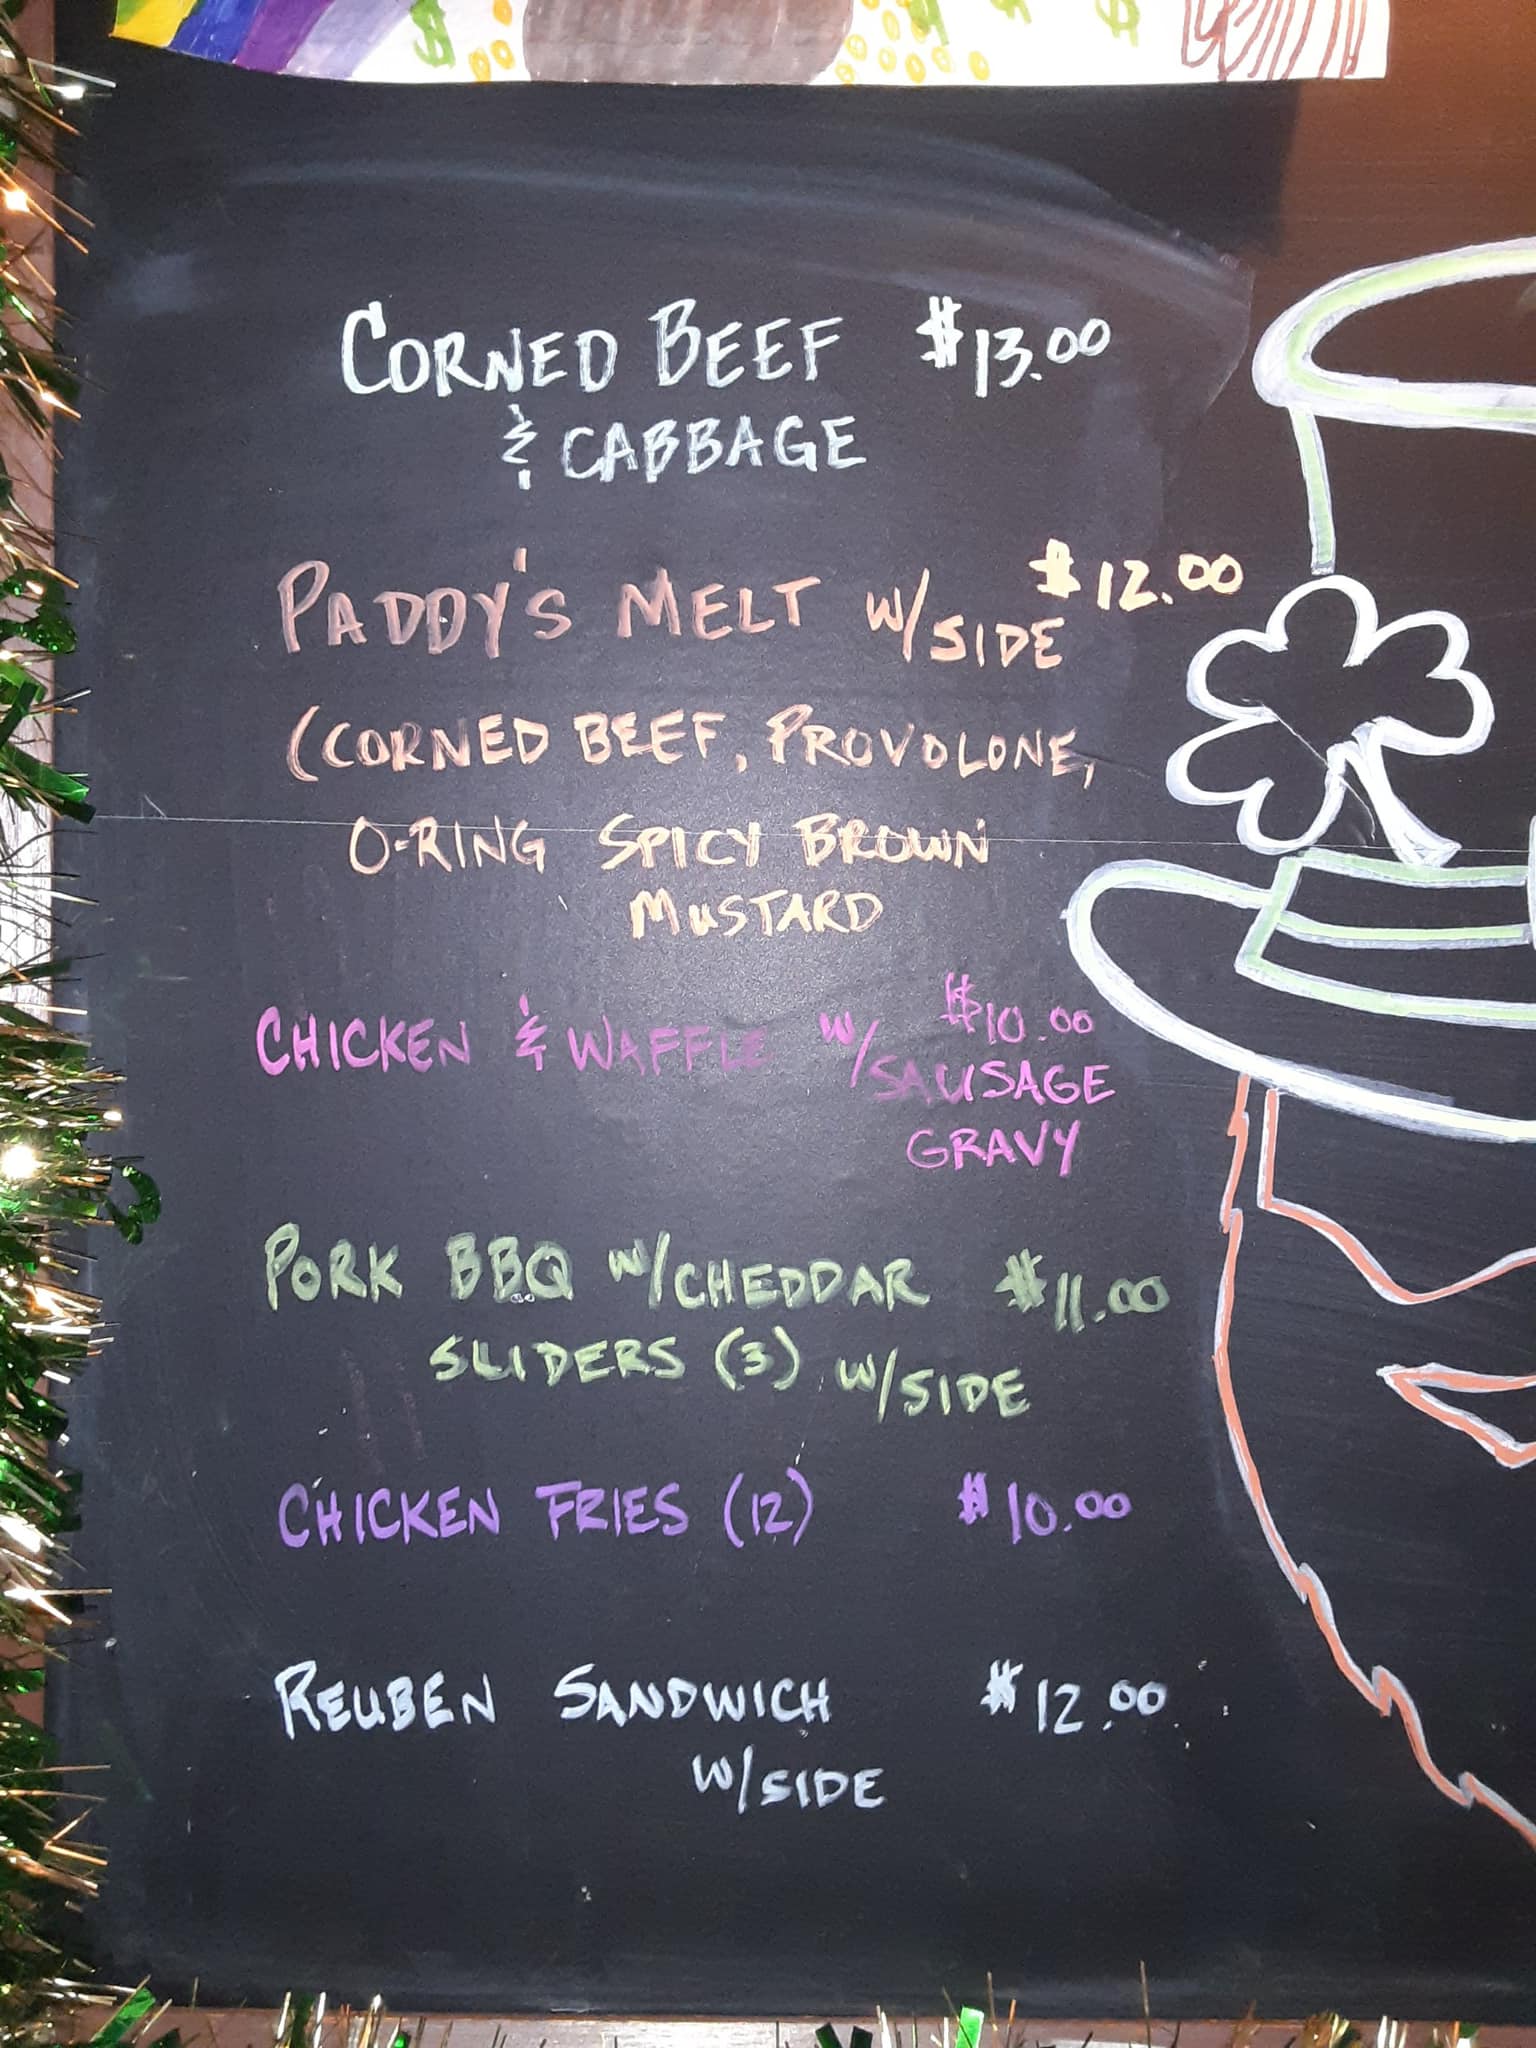 CORNED BEEF $13.00
& CABBAGE
PADDY'S MELT W/SIDE $12.00
(CORNED BEEF, PROVOLONE,
O-RING SPICY BROWN
MUSTARD
CHICKEN & WAFFLE W/SAUSAGE $10.00
GRAVY
PORK BBQ W/CHEDDAR $11.00
SLIDERS (3) W/SIDE
CHICKEN FRIES (12) $10.00
REUBEN SANDWICH $12.00
W/SIDE